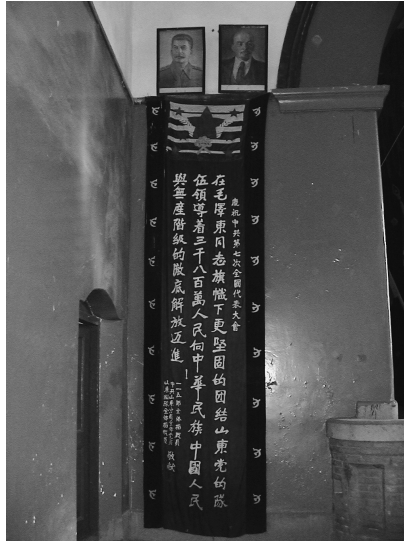 慶祝中共第七次全國代表大會
在毛澤東同志旗幟下更堅固的团结山東党的隊
伍領導着三千八百萬人民向中華民族中國人民
與無産階級的澈底解放迈進！
一一五師全体指战員
山東
敬献